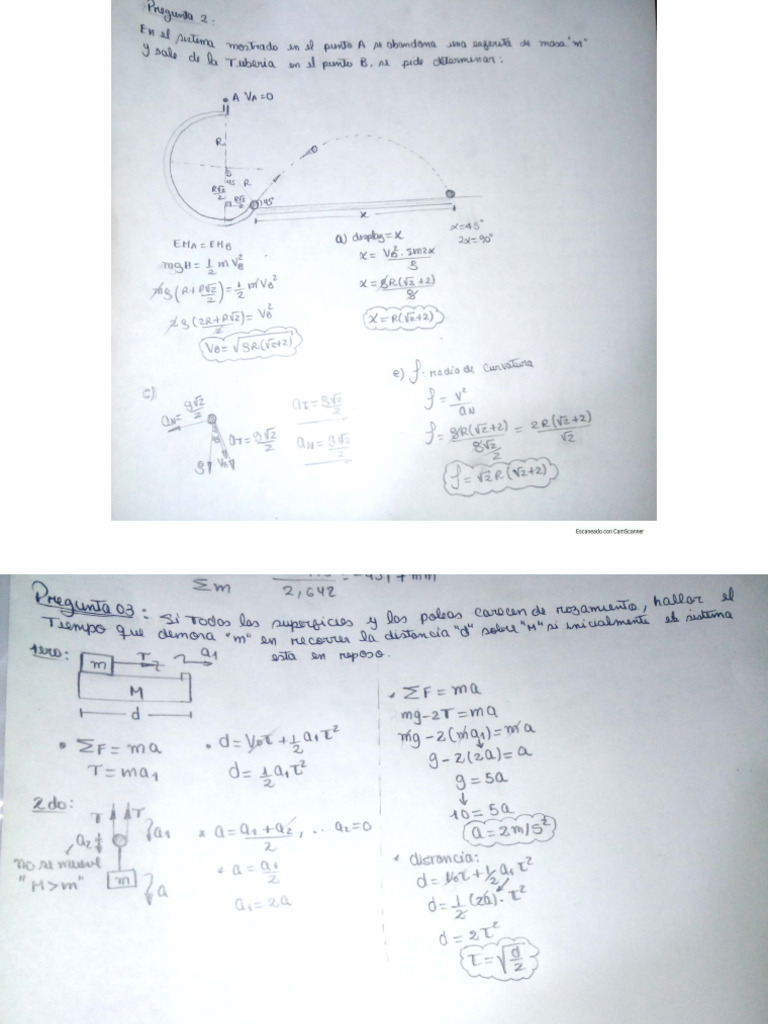 Pregunta 2:
En el sistema mostrado en el punto A se abandona una esferita de masa "m"
y sale de la Tuberia en el punto B. se pide determinar:
A VA=0
R
45 R
R√2/2
R√2/2
45
x
α=45°
2α=90°
EMA = EMB
mgH = 1/2 m VB²
mg(R+R√2/2) = 1/2 m VB²
2g(2R+R√2)/2 = VB²
VB = √gR(√2+2)
a) desplaz = x
x = VB² · sen2α/g
x = gR(√2+2)/g
x = R(√2+2)
c)
aN = g√2/2
aT = g√2/2
g
aT = g√2/2
aN = g√2/2
e) ρ: radio de curvatura
ρ = V²/aN
ρ = gR(√2+2)/(g√2/2) = 2R(√2+2)/√2
ρ = √2 R(√2+2)
Escaneado con CamScanner
Σm
2,642
Pregunta 03: Si Todas las superficies y las poleas carecen de rozamiento, hallar el
Tiempo que demora "m" en recorrer la distancia "d" sobre "M" si inicialmente el sistema
esta en reposo.
1ero:
m T a1
M
d
• ΣF = ma
T = ma1
• d = V0t + 1/2 a1t²
d = 1/2 a1t²
2do:
T T
a1
a2
no se mueve
"M>m"
m
a
* a = (a1 + a2)/2, ... a2=0
* a = a1/2
a1 = 2a
• ΣF = ma
mg - 2T = ma
mg - 2(ma1) = ma
g - 2(2a) = a
g = 5a
10 = 5a
a = 2m/s²
* distancia:
d = V0t + 1/2 a1t²
d = 1/2 (2a) · t²
d = 2t²
t = √d/2